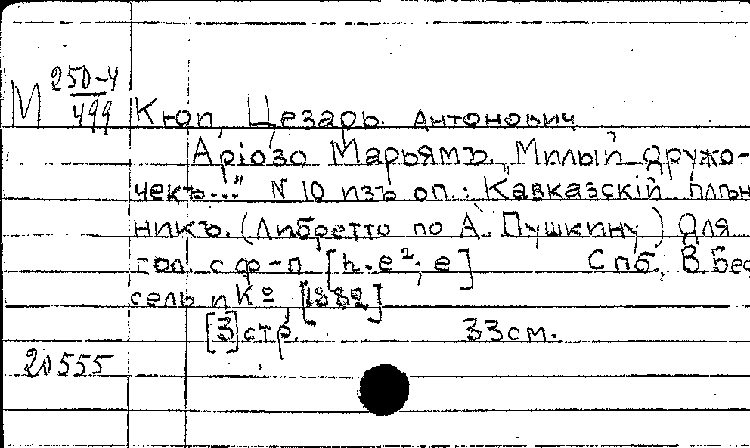 М 250-4/499
Кюи, Цезарь Антонович
Аріозо Марьямъ „Милый дружо-
чекъ..." N 10 изъ оп.: „Кавказскій плѣн
никъ. (Либретто по А. Пушкину) Для
гол. с ф-п. [h-e²; e] Спб., В. Бес
сель и Кº, [1882]
[3] стр. 33 см.
20555